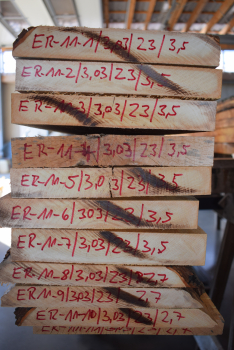 ER-11-1/3,03/23/3,5
ER-11-2/3,03/23/3,5
ER-11-3/3,03/23/3,5
ER-11-4/3,03/23/3,5
ER-11-5/3,03/23/3,5
ER-11-6/303/23/3,5
ER-11-7/3,03/23/3,5
ER-11-8/3,03/23/2,7
ER-11-9/303/23/2,7
ER-11-10/3,03/23/2,7